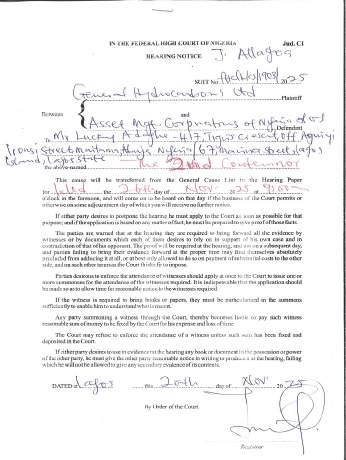 IN THE FEDERAL HIGH COURT OF NIGERIA
Jud. C1
HEARING NOTICE
J. Allagoa
SUIT No FHC/L/CS/1903/ 2025
General Hydrocarbons Ltd
Plaintiff
Between and
Asset Mgt Corporation of Nigeria & ors
Defendant
To Mr Lucky Adaghe - 4/7 Tigris Crescent, Off Aguiyi
Ironsi Street Maitama, Abuja Nigeria 67, Marina Street, Lagos
Island, Lagos State
the above-named The 2nd Contemnor
This cause will be transferred from the General Cause List to the Hearing Paper
for the 26th day of Nov. 25 at 9:00
o'clock in the forenoon, and will come on to be heard on that day if the business of the Court permits or
otherwise on some adjournment day of which you will receive no further notice.
If either party desires to postpone the hearing he must apply to the Court as soon as possible for that
purpose; and if the application is based on any matter of fact, he must be prepared to give proof of those facts.
The parties are warned that at the hearing they are required to bring forward all the evidence by
witnesses or by documents which each of them desires to rely on in support of his own case and in
contradiction of that of his opponent. The proof will be required at the hearing, and not on a subsequent day,
and parties failing to bring their evidence forward at the proper time may find themselves absolutely
precluded from adducing it at all, or at best only allowed to do so on payment of substantial costs to the other
side, and on such other terms as the Court thinks fit to impose.
Parties desirous to enforce the attendance of witnesses should apply at once to the Court to issue one or
more summonses for the attendance of the witnesses required. It is indispensable that the application should
be made so as to allow time for reasonable notice to the witnesses required.
If the witness is required to bring books or papers, they must be particularised in the summons
sufficiently to enable him to understand what is meant.
Any party summoning a witness through the Court, thereby becomes liable to pay such witness
reasonable sum of money to be fixed by the Court for his expense and loss of time.
The Court may refuse to enforce the attendance of a witness unless such sum has been fixed and
deposited in the Court.
If either party desires to use in evidence at the hearing any book or document in the possession or power
of the other party, he must give the other party reasonable notice in writing to produce it at the hearing, failing
which he will not be allowed to give any secondary evidence of its contents.
DATED at Lagos this 20th day of Nov. 2025
By Order of the Court.
Registrar